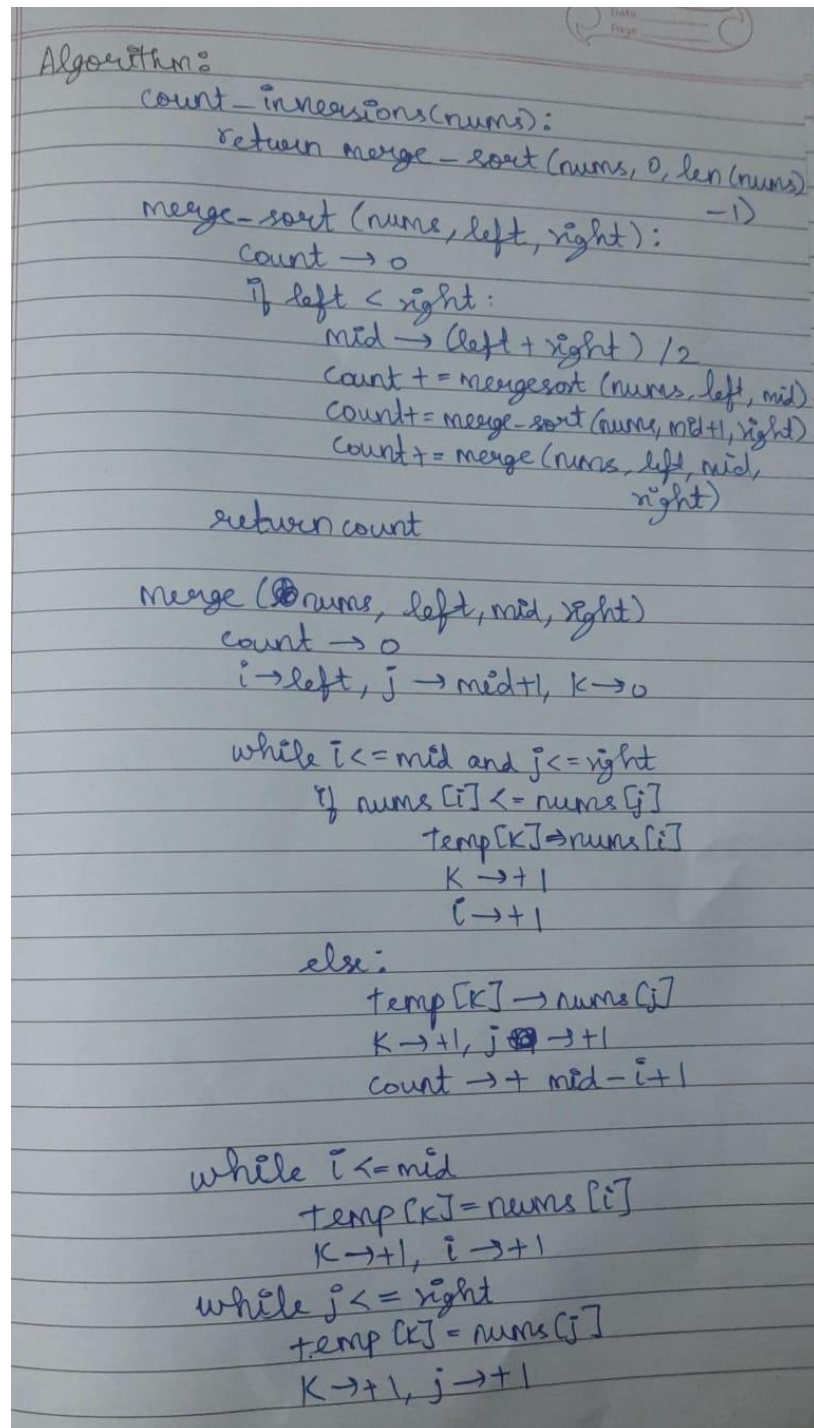 Data
Page
Algorithm:
count_inversions(nums):
return merge-sort(nums, 0, len(nums)
-1)
merge-sort (nums, left, right):
count → 0
if left < right:
mid → (left + right) /2
count + = mergesort (nums, left, mid)
count+ = merge-sort (nums, mid+1, right)
count+ = merge (nums, left, mid,
right)
return count
merge (nums, left, mid, right)
count → 0
i → left, j → mid+1, k → 0
while i <= mid and j <= right
if nums [i] <= nums [j]
temp[k] → nums[i]
K → +1
i → +1
else:
temp [K] → nums [j]
K → +1, j → +1
count → + mid - i + 1
while i <= mid
temp [K] = nums [i]
K → +1, i → +1
while j <= right
temp [K] = nums [j]
K → +1, j → +1